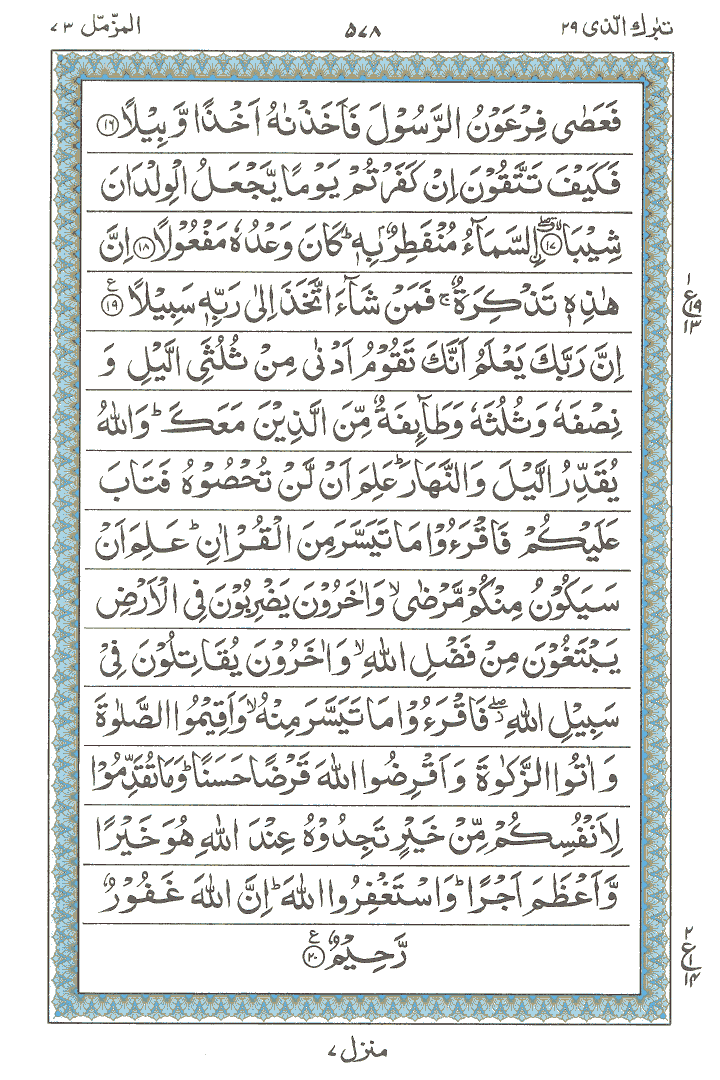 تبٰرك الّذی ۲۹ ۵۷۸ المزّمّل ۷۳
فَعَصٰی فِرْعَوْنُ الرَّسُوْلَ فَاَخَذْنٰهُ اَخْذًا وَّبِیْلًا ۱۶
فَكَیْفَ تَتَّقُوْنَ اِنْ كَفَرْتُمْ یَوْمًا یَّجْعَلُ الْوِلْدَانَ
شِیْبَا ۱۷ ِ۟السَّمَآءُ مُنْفَطِرٌۢ بِهٖ ؕ كَانَ وَعْدُهٗ مَفْعُوْلًا ۱۸ اِنَّ
هٰذِهٖ تَذْكِرَةٌ ۚ فَمَنْ شَآءَ اتَّخَذَ اِلٰی رَبِّهٖ سَبِیْلًا ۱۹ ع
۱ ع ۱۹ ۱۳
اِنَّ رَبَّكَ یَعْلَمُ اَنَّكَ تَقُوْمُ اَدْنٰی مِنْ ثُلُثَیِ الَّیْلِ وَ
نِصْفَهٗ وَثُلُثَهٗ وَطَآىِٕفَةٌ مِّنَ الَّذِیْنَ مَعَكَ ؕ وَاللّٰهُ
یُقَدِّرُ الَّیْلَ وَالنَّهَارَ ؕ عَلِمَ اَنْ لَّنْ تُحْصُوْهُ فَتَابَ
عَلَیْكُمْ فَاقْرَءُوْا مَا تَیَسَّرَ مِنَ الْقُرْاٰنِ ؕ عَلِمَ اَنْ
سَیَكُوْنُ مِنْكُمْ مَّرْضٰی ۙ وَاٰخَرُوْنَ یَضْرِبُوْنَ فِی الْاَرْضِ
یَبْتَغُوْنَ مِنْ فَضْلِ اللّٰهِ ۙ وَاٰخَرُوْنَ یُقَاتِلُوْنَ فِیْ
سَبِیْلِ اللّٰهِ ۖؗ فَاقْرَءُوْا مَا تَیَسَّرَ مِنْهُ ۙ وَاَقِیْمُوا الصَّلٰوةَ
وَاٰتُوا الزَّكٰوةَ وَاَقْرِضُوا اللّٰهَ قَرْضًا حَسَنًا ؕ وَمَا تُقَدِّمُوْا
لِاَنْفُسِكُمْ مِّنْ خَیْرٍ تَجِدُوْهُ عِنْدَ اللّٰهِ هُوَ خَیْرًا
وَّاَعْظَمَ اَجْرًا ؕ وَاسْتَغْفِرُوا اللّٰهَ ؕ اِنَّ اللّٰهَ غَفُوْرٌ
رَّحِیْمٌ ۲۰ ع
۲ ع ۱ ۱۴
منزل ۷